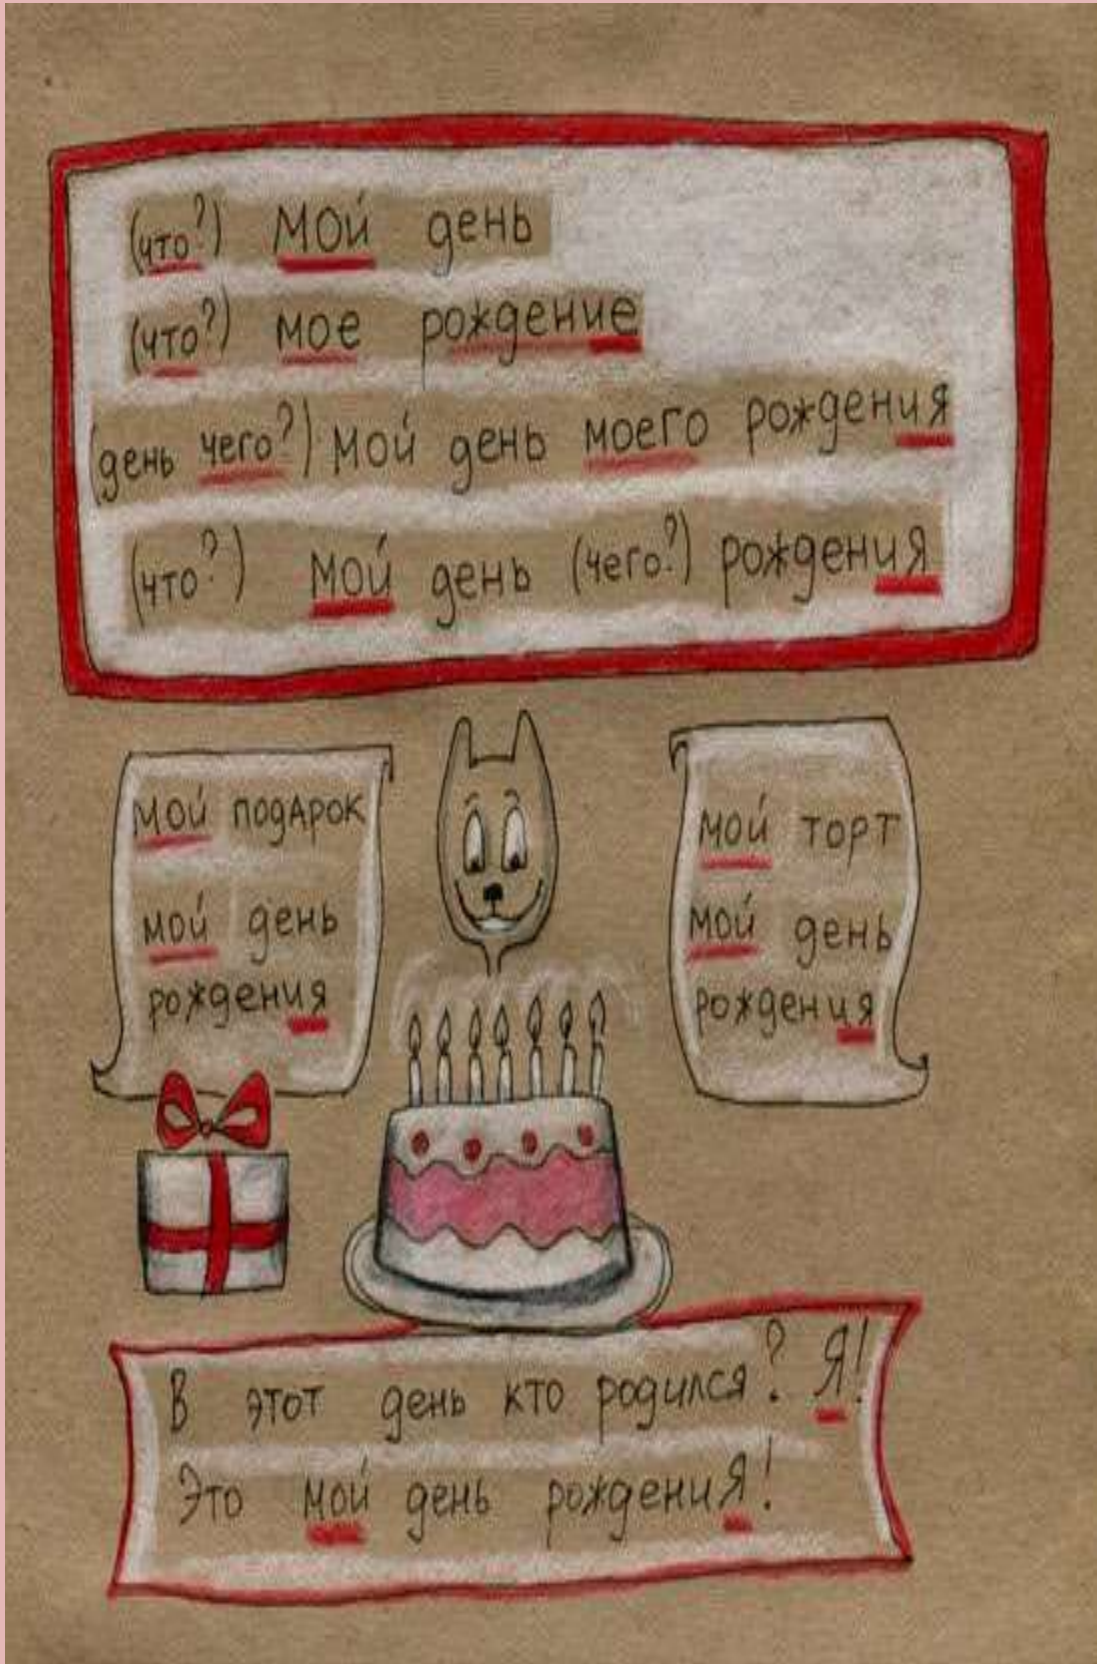 (что?) мой день
(что?) мое рождение
(день чего?) мой день моего рождения
(что?) мой день (чего?) рождения
мой подАрок
мой день
рождения
мой торт
мой день
рождения
В этот день кто родился? Я!
Это мой день рождениЯ!